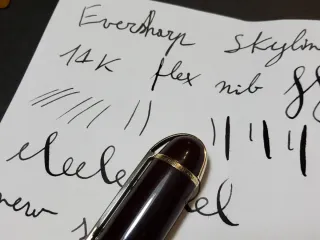 Eversharp Skylin
14K flex nib
new